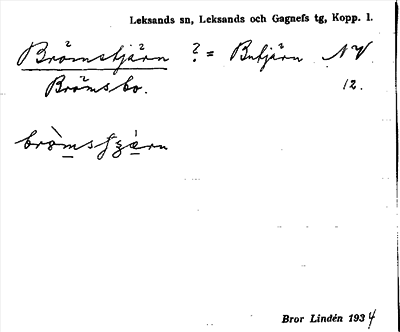 Leksands sn, Leksands och Gagnefs tg, Kopp. l.
Brömstjärn ? = Butjärn NV
Brömsbo. 12.
Bror Lindén 1934